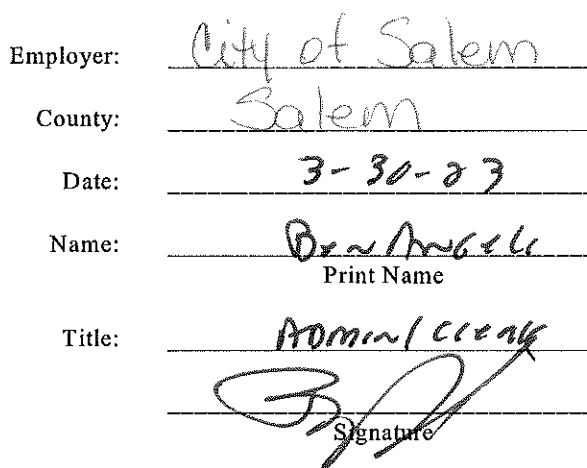 Employer: City of Salem
County: Salem
Date: 3-30-23
Name: Ben Angeli
Print Name
Title: Admin/Clerk
Signature